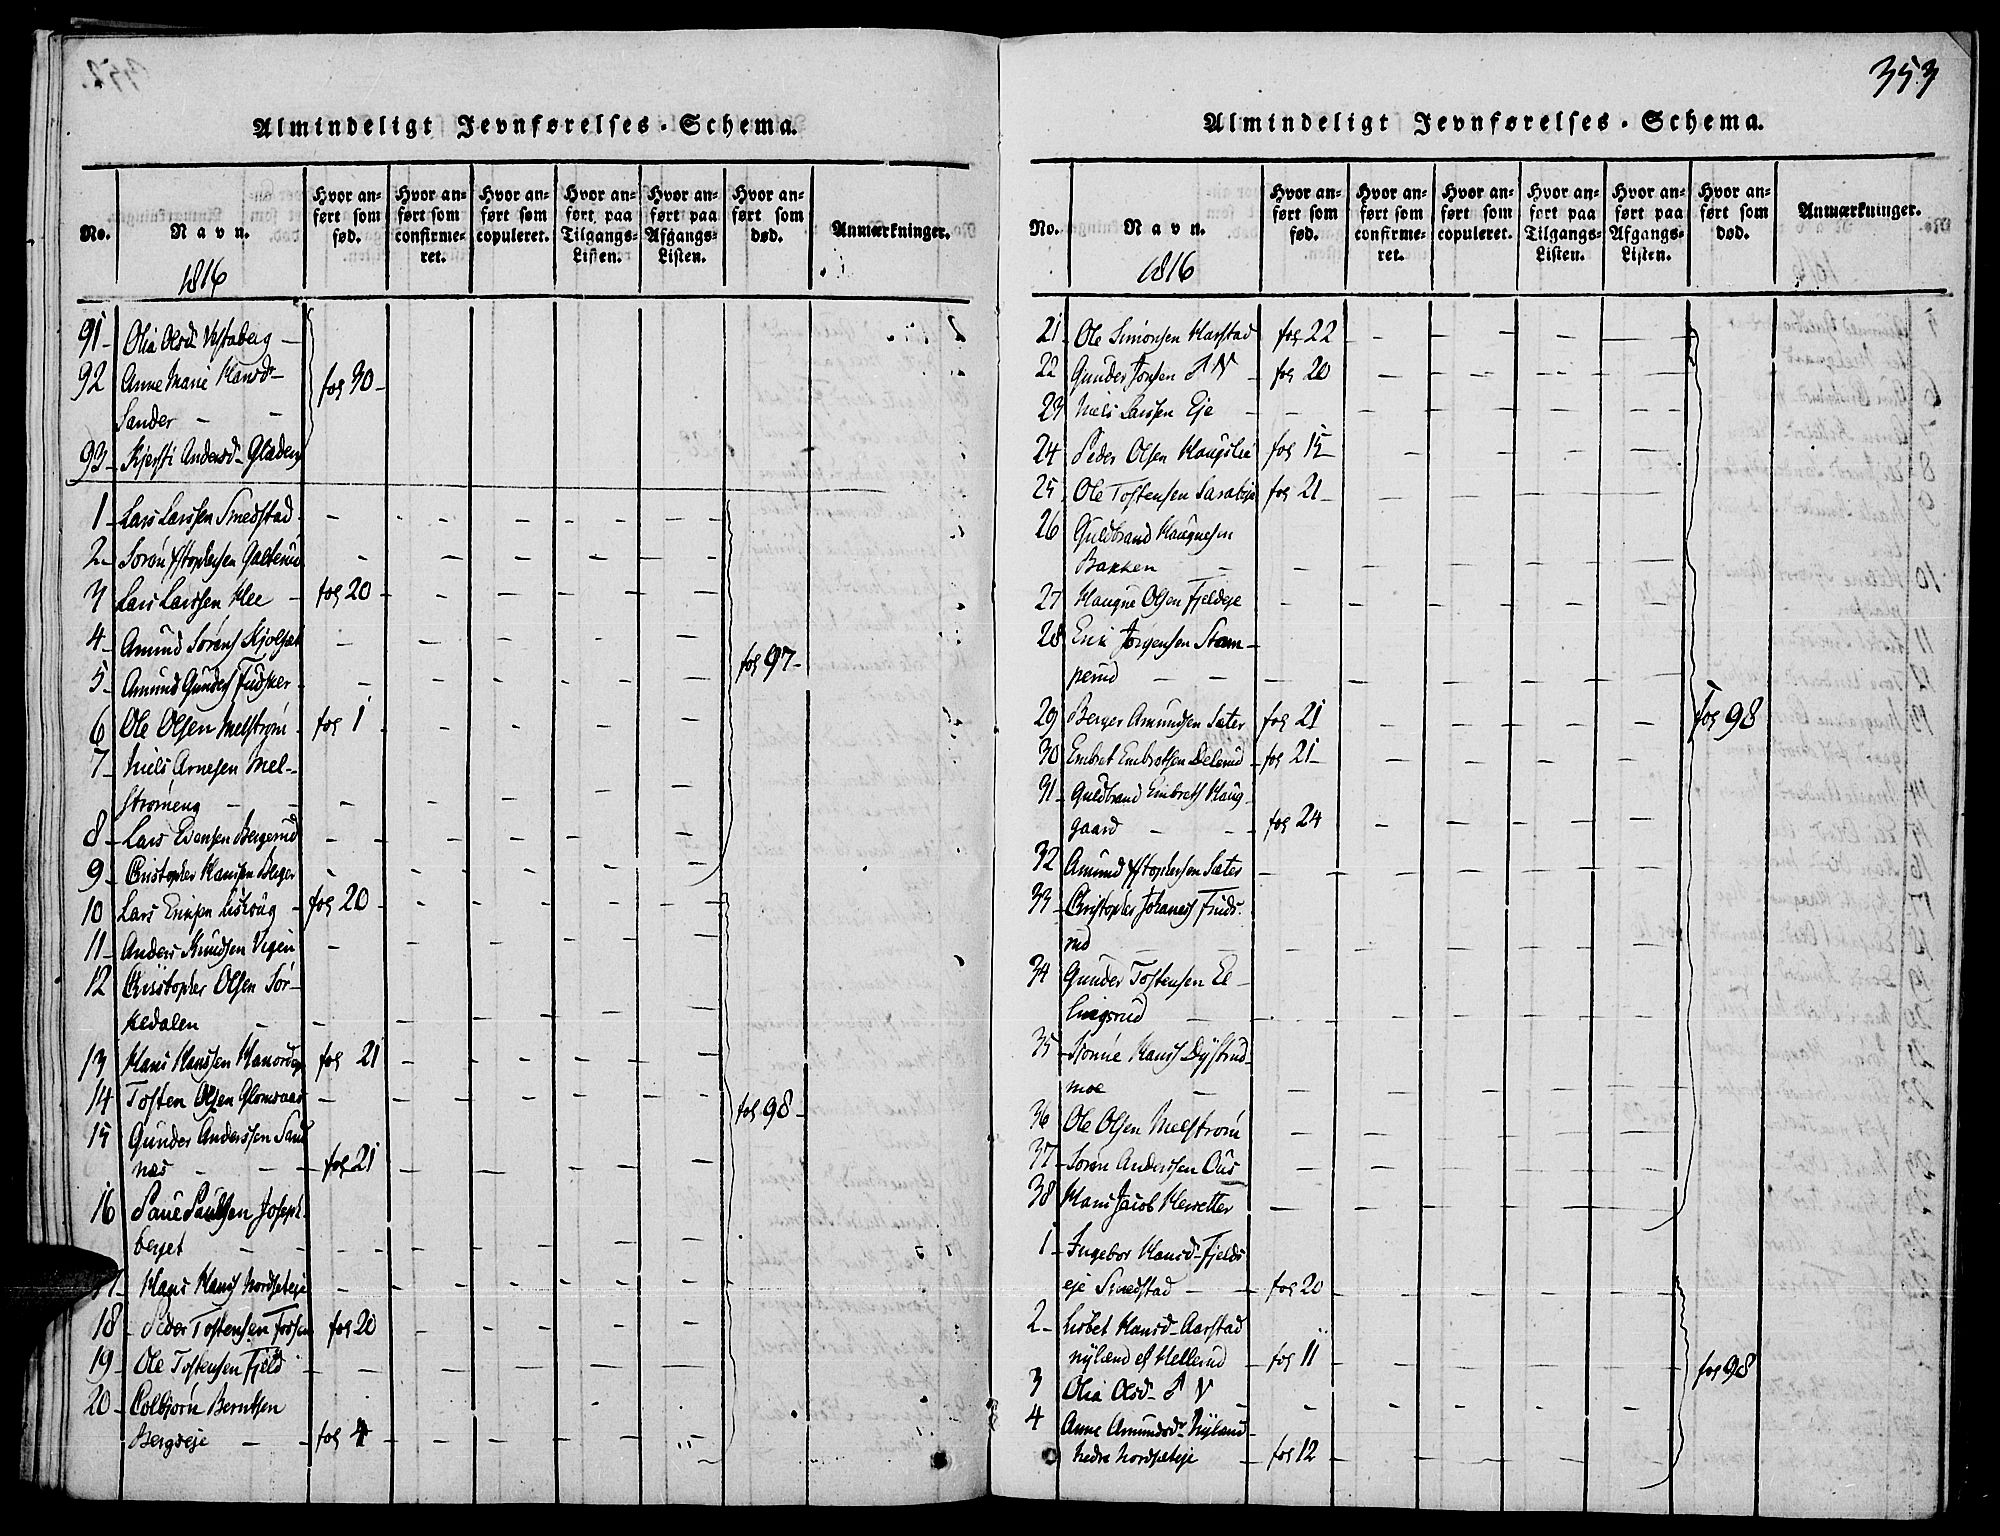 Almindeligt Jevnførelses-Schema.
No.
Navn.
Hvor anført som fød.
Hvor anført som confirmeret.
Hvor anført som copuleret.
Hvor anført paa Tilgangs-Listen.
Hvor anført paa Afgangs-Listen.
Hvor anført som død.
Anmærkninger.
1816
91 Olia Olsd Vestaberg –
92 Anne Marie Hansd–
Sander – – fol 30–
93– Kjersti Andersd–
1– Lars Larssen Smedstad – – – – – –
2– Soren – – – – – –
3 Lars Larssen Klee – fol 20 – – – –
4– Amund Sørens – – – – – –
5– Amund – – – – – – fol 97–
6 Ole Olsen Melstrøm – fol 1 – – – –
7– Niels Arnesen Mel–
strømeng – – – – – –
8– Lars Evensen Bergerud – – – – –
9– Cristopher Hansen Berger – – – – –
10 Lars fol 20 – – – –
11– Anders Knudsen Vigen – – – – –
12 Christopher Olsen Sør–
kedalen – – – – – –
13 Hans Hanssen fol 21 – – – –
14 Tosten Olsen Glomsaas – – – – – fol 98–
15 Gunder Anderssen Sand
næs – – fol 21 – – – –
16 Paul Paulsen Joseph–
berget – – – – – – –
17– Hans Hans Nordseteje – – – – –
18– Peder Tostensen fol 20 – – – –
19– Ole Tostensen Fjeld – – – – –
20– Colbjørn Berntsen
Bergseje – – fol 4 – – – –
353
Almindeligt Jevnførelses-Schema.
No.
Navn.
Hvor anført som fød.
Hvor anført som confirmeret.
Hvor anført som copuleret.
Hvor anført paa Tilgangs-Listen.
Hvor anført paa Afgangs-Listen.
Hvor anført som død.
Anmærkninger.
1816
21– Ole Simonsen Harstad fol 22 – – – –
22 Gunder Jonsen S N – fol 20 – – – –
23 Niels Larssen Eje – – – – – –
24 Peder Olsen Haugslie fol 15 – – – –
25– Ole Tostensen fol 21– – – – –
26 Guldbrand Haugnesen
Bakken – – – – – –
27 Haugne Olsen Fjeldeje – – – – –
28 Erik Jørgensen Stom–
perud – – – – – – –
29– Berger Amundsen Sæter fol 21 – – – – fol 98
30 Embret Embretsen Delerud – fol 21– – – – –
31– Guldbrand Embrets Haug–
gaard – – fol 24 – – – –
32 Amund Sæter – – – – –
33– Christopher Johanes Frids–
rud – – – – – –
34 Gunder Tostensen El–
lingsrud – – – – – –
35– Hans Dystrud–
moe – – – – – –
36 Ole Olsen Melstrøm – – – – –
37– Soren Anderssen Ous – – – – –
38 Hans Jacob – – – – –
1– Ingebor Hansd– Fjelds
eje Smedstad – – fol 20 – – – –
2– Lisbet Hansd– Aarstad
nylænd ef Hellerud – fol 11 – – – – fol 98
3 Olia Olsd– S N – – – – –
4 Anne Amundsd– Nylænd–
nedre Nordseteje – fol 12 – – – –